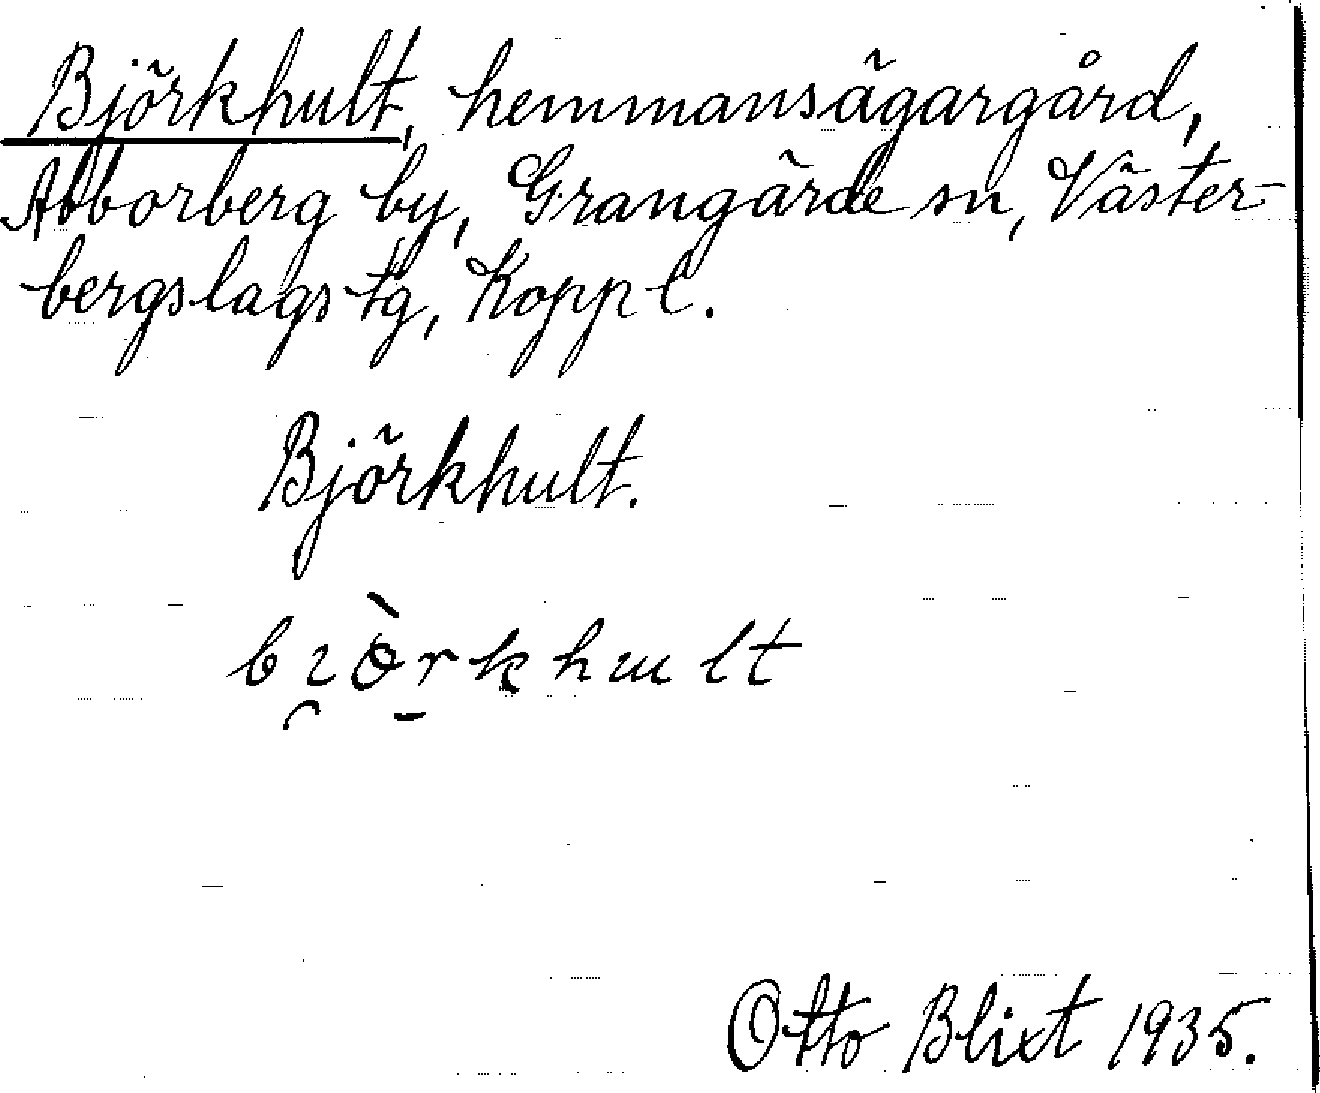 Björkhult, hemmansägargård,
Abborberg by, Grangärde sn, Väster-
bergslags tg, Kopp l.
Björkhult.
bı̯ò̠rkhult
Otto Blixt 1935.